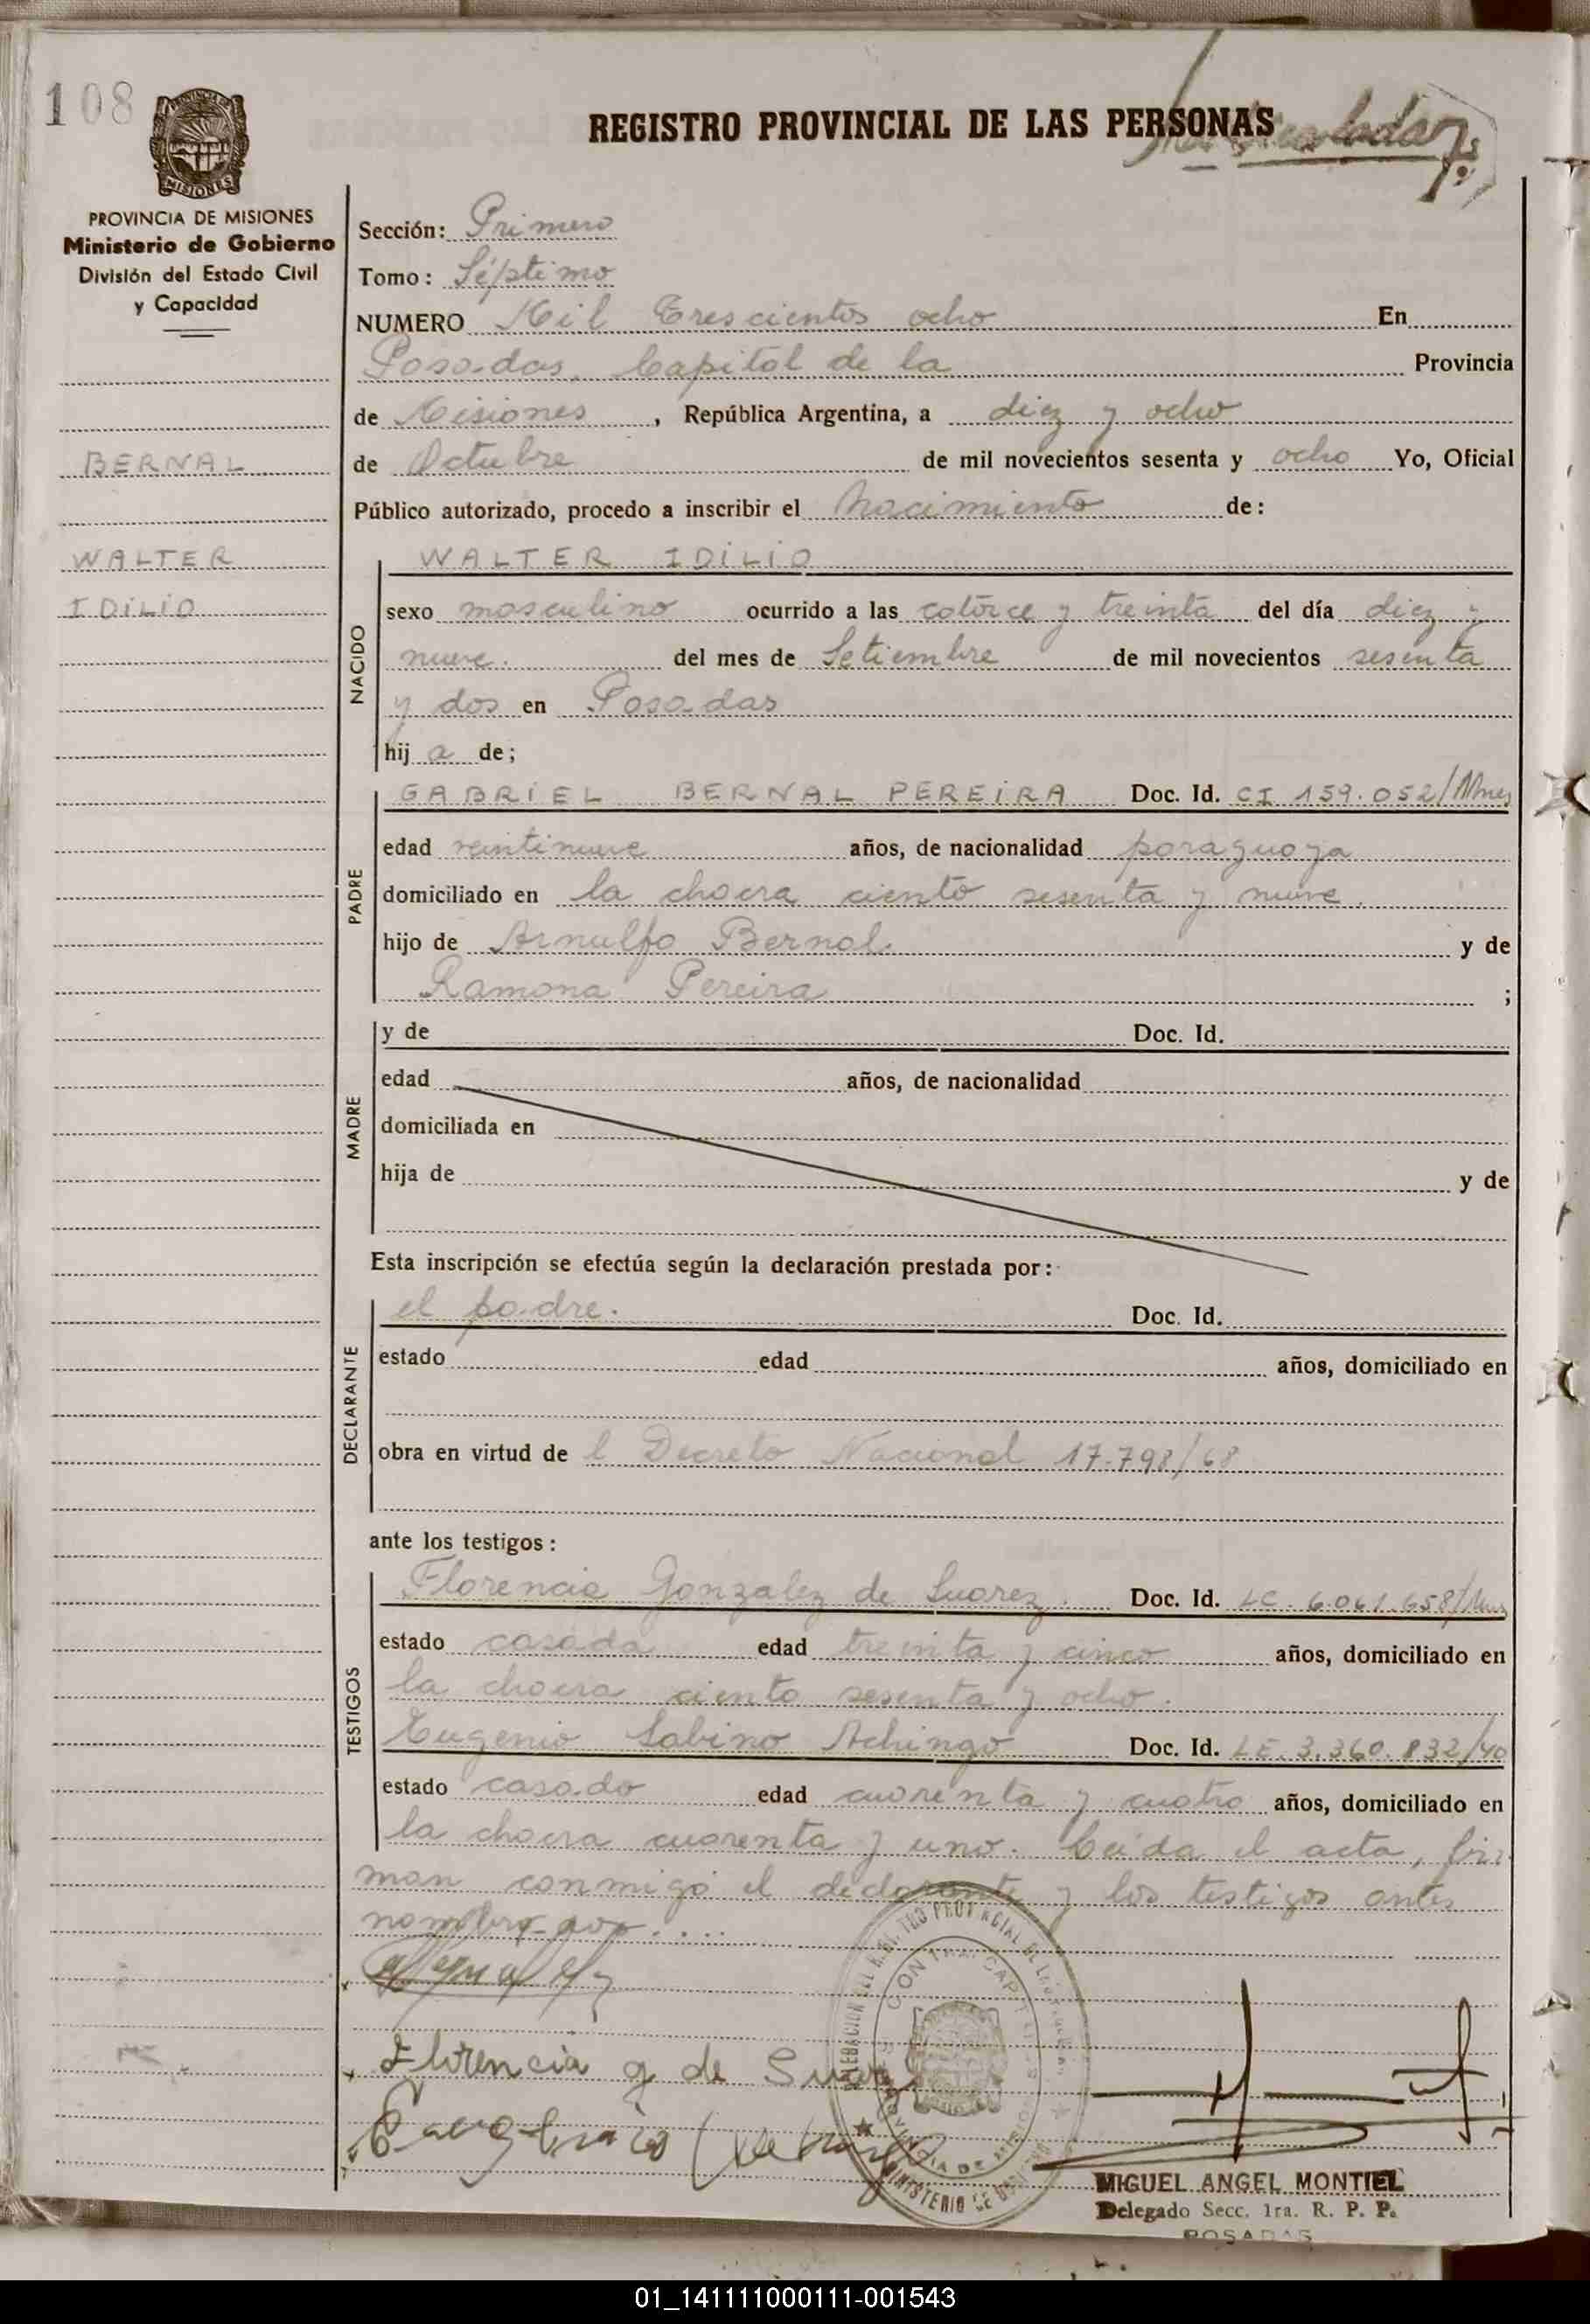 108
REGISTRO PROVINCIAL DE LAS PERSONAS
MISIONES
PROVINCIA DE MISIONES
Ministerio de Gobierno
División del Estado Civil
y Capacidad
BERNAL
WALTER
IDILIO
Sección: Primera
Tomo: Séptimo
NUMERO Mil Trescientos ocho En
Posadas, Capital de la Provincia
de Misiones, República Argentina, a diez y ocho
de Octubre de mil novecientos sesenta y ocho Yo, Oficial
Público autorizado, procedo a inscribir el Nacimiento de:
NACIDO
WALTER IDILIO
sexo masculino ocurrido a las catorce y treinta del día diez y
nueve. del mes de Setiembre de mil novecientos sesenta
y dos en Posadas
hij a de;
PADRE
GABRIEL BERNAL PEREIRA Doc. Id. CI 159.052/Mnes
edad veintinueve años, de nacionalidad paraguaya
domiciliado en la chacra ciento sesenta y nueve.
hijo de Arnulfo Bernal y de
Ramona Pereira ;
MADRE
y de Doc. Id.
edad años, de nacionalidad
domiciliada en
hija de y de
Esta inscripción se efectúa según la declaración prestada por:
DECLARANTE
el padre. Doc. Id.
estado edad años, domiciliado en
obra en virtud de l Decreto Nacional 17.798/68
ante los testigos:
TESTIGOS
Florencia Gonzalez de Suarez. Doc. Id. LC. 6.061.658/Mnes
estado casada edad treinta y cinco años, domiciliado en
la chacra ciento sesenta y ocho.
Eugenio Sabino Achingo Doc. Id. LE. 3.360.832/40
estado casado edad cuarenta y cuatro años, domiciliado en
la chacra cuarenta y uno. Leída el acta, fir-
man conmigo el declarante y los testigos antes
nombrados....
Florencia g de Suarez
MIGUEL ANGEL MONTIEL
Delegado Secc. 1ra. R. P. P.
POSADAS
01_141111000111-001543